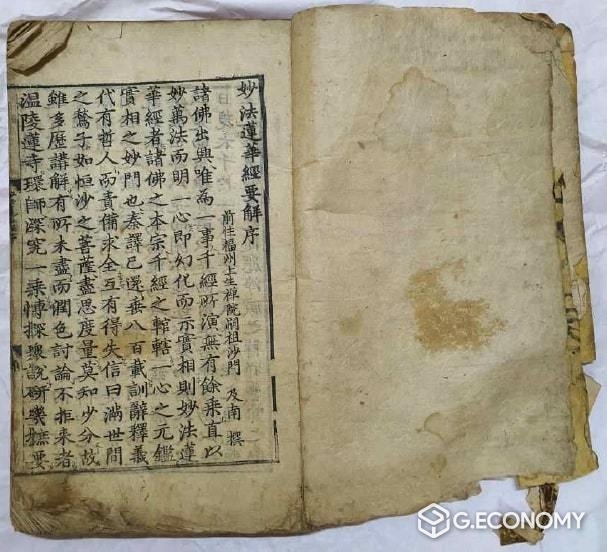 妙法蓮華經要解序
前住福州上生禅院嗣祖沙門 及南 撰
諸佛出興唯為一事千經所演無有餘乗直以
妙萬法而明一心即幻化而示實相則妙法蓮
華經者諸佛之本宗千經之輨轄一心之元鑑
實相之妙門也秦譯已還垂八百載訓辭釋義
代有哲人而責備求全互有得失信曰滿世間
之鶖子如恒沙之菩薩盡思度量莫知少分故
雖多歷講解有所未盡而潤色討論不拒來者
温陵蓮寺環師深究一乗愽探衆說研幾摭要
G.ECONOMY